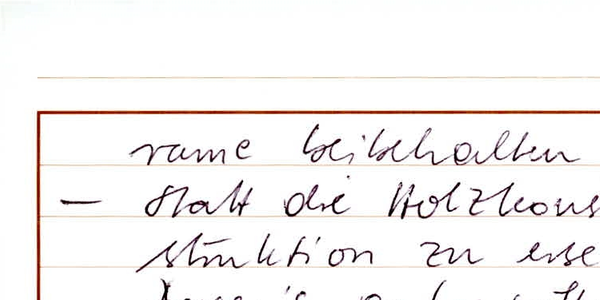 rame beibehalten
— Statt die Holzkons
struktion zu erse